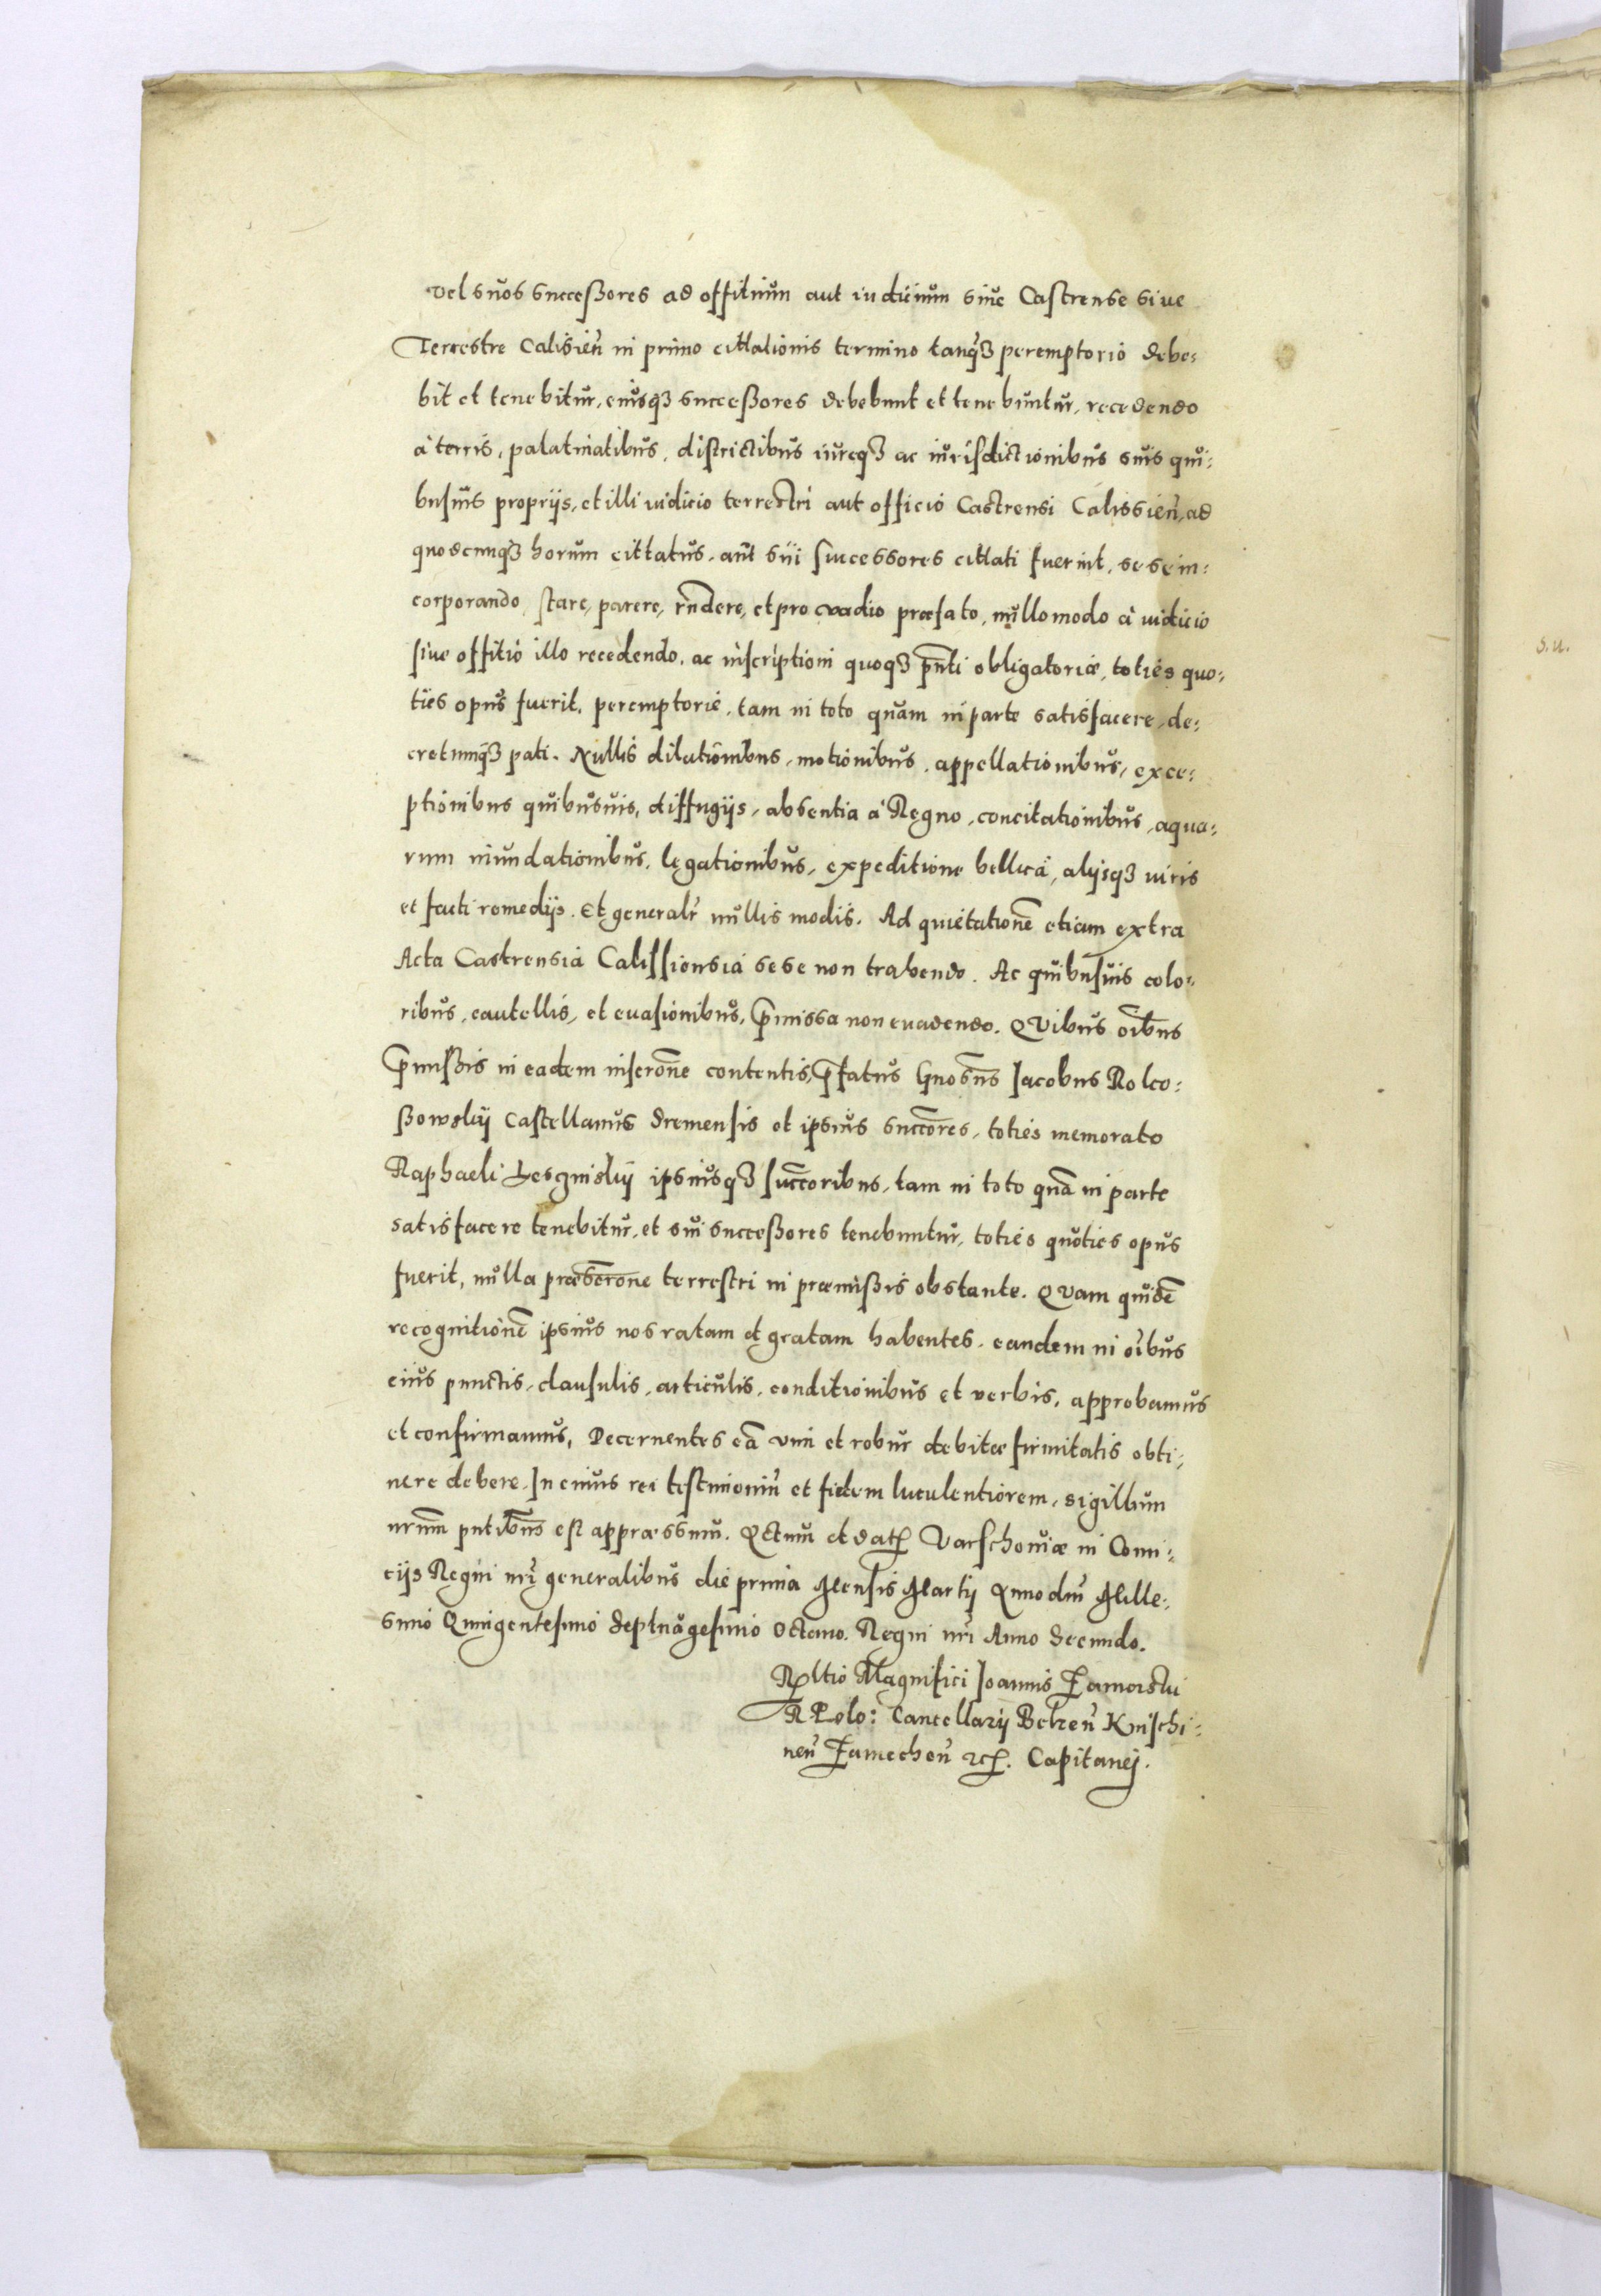 vel suos successores ad offitium aut iudicium siue Castrense siue
Terrestre Calisień in primo cittationis termino tanq̃ꝫ peremptorio debe:
bit et tenebitur, eiusqꝫ successores debebunt et tenebuntur, recedendo
à terris, palatinatibus, districtibus iureqꝫ ac iurisdictionibus suis qui:
busuis proprijs, et illi iudicio terrestri aut officio Castrensi Calissień, ad
quodcunqꝫ horum cittatus, aut sui successores cittati fuerint, sese in:
corporando, stare, parere, rñdere, et pro vadio præfato, nullo modo à iudicio
siue offitio illo recedendo, ac inscriptioni quoqꝫ p̃nti obligatoriæ, toties quo:
ties opus fuerit, peremptorie, tam in toto quam in parte satisfacere, de:
cretumqꝫ pati. Nullis dilationibus, motionibus, appellationibus, exce:
ptionibus quibusuis, diffugijs, absentia à Regno, concitationibus, aqua:
rum inundationibus, legationibus, expeditione bellica, alijsqꝫ iuris
et facti remedijs. Et generalr̃ nullis modis. Ad quietationẽ etiam extra
Acta Castrensia Calissiensia sese non trahendo. Ac quibusuis colo:
ribus, cautellis, et euasionibus, p̃missa non euadendo. Quibus oĩbus
p̃missis in eadem inscrõne contentis, p̃fatus Gnosũs Jacobus Roko:
ssowskij Castellanus Sremensis et ipsius succõres, toties memorato
Raphaeli Lesczinskij ipsiusqꝫ succõribus, tam in toto quã in parte
satisfacere tenebitur, et sui successores tenebuntur, toties quoties opus
fuerit, nulla præscrõne terrestri in præmissis obstante. Quam quidẽ
recognitionẽ ipsius nos ratam et gratam habentes, eandem in oĩbus
eius punctis, clausulis, articulis, conditionibus et verbis, approbamus
et confirmamus, Decernentes eã vim et robur debitæ firmitatis obti:
nere debere. In cuius rei testimoniũ et fidem luculentiorem, sigillum
nrũm pñtibus est appræssum. Actum et datꝭ Varschouiæ in Comi:
cijs Regni nrĩ generalibus die prima Mensis Martij Anno dnĩ Mille:
simo Quingentesimo Septuagesimo Octauo. Regni nrĩ Anno Secundo.
Rltio Magnifici Joannis Zamoiskij
R Polo: Cancellarij Belzeñ Knischi:
neñ Zamecheñ ꝛcꝭ. Capitanej.
s.u.